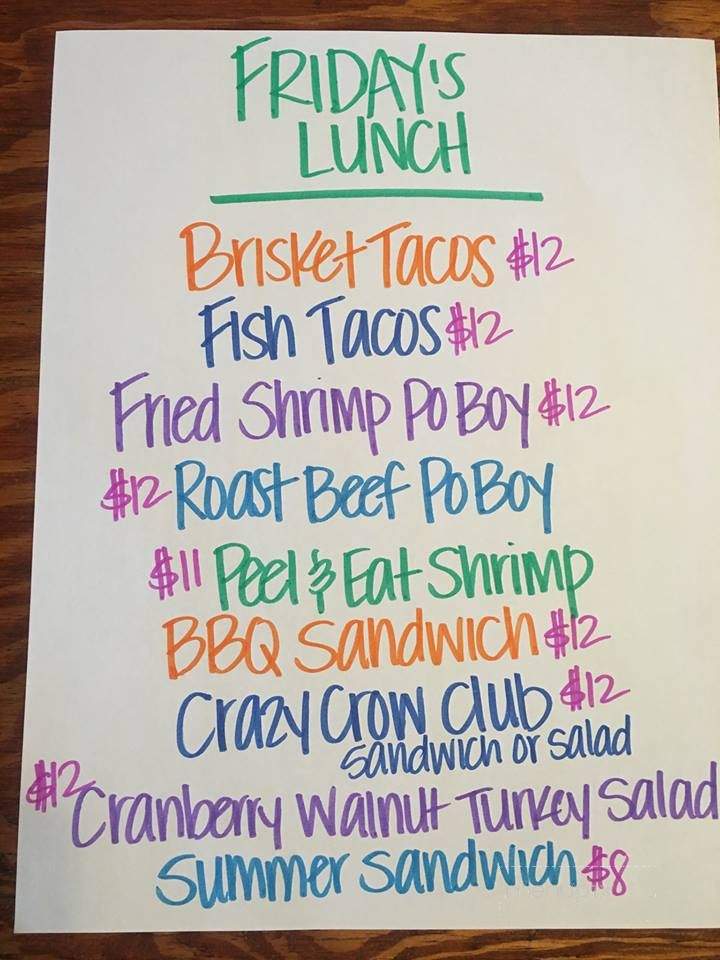 FRIDAY'S
LUNCH
Brisket Tacos $12
Fish Tacos $12
Fried Shrimp Po Boy $12
$12 Roast Beef Po Boy
$11 Peel & Eat Shrimp
BBQ Sandwich $12
Crazy Crow Club $12
Sandwich or Salad
$12 Cranberry Walnut Turkey Salad
Summer Sandwich $8